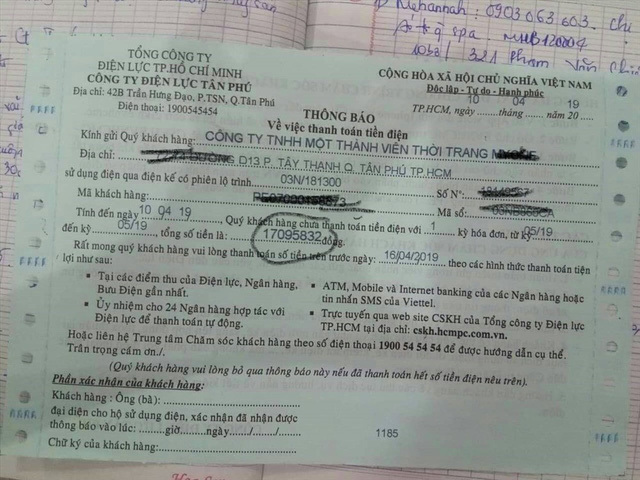 Muhannah: 0903 063 603. chị
TỔNG CÔNG TY
ĐIỆN LỰC TP.HỒ CHÍ MINH
CÔNG TY ĐIỆN LỰC TÂN PHÚ
Địa chỉ: 42B Trần Hưng Đạo, P.TSN, Q.Tân Phú
Điện thoại: 1900545454
CỘNG HÒA XÃ HỘI CHỦ NGHĨA VIỆT NAM
Độc lập - Tự do - Hạnh phúc
TP.HCM, ngày 10 tháng 04 năm 20 19
THÔNG BÁO
Về việc thanh toán tiền điện
Kính gửi Quý khách hàng: CÔNG TY TNHH MỘT THÀNH VIÊN THỜI TRANG
Địa chỉ: ĐƯỜNG D13.P. TÂY THẠNH.Q. TÂN PHÚ.TP.HCM
sử dụng điện qua điện kế có phiên lộ trình 03N/181300 Số Nº:
Mã khách hàng: Mã số:
Tính đến ngày 10 04 19, Quý khách hàng chưa thanh toán tiền điện với 1 kỳ hóa đơn, từ kỳ 05/19
đến kỳ 05/19, tổng số tiền là: 17095832 đồng.
Rất mong quý khách hàng vui lòng thanh toán số tiền trên trước ngày: 16/04/2019 theo các hình thức thanh toán tiện
lợi như sau:
▪ Tại các điểm thu của Điện lực, Ngân hàng,
Bưu Điện gần nhất.
▪ Ủy nhiệm cho 24 Ngân hàng hợp tác với
Điện lực để thanh toán tự động.
▪ ATM, Mobile và Internet banking của các Ngân hàng hoặc
tin nhắn SMS của Viettel.
▪ Trực tuyến qua web site CSKH của Tổng công ty Điện lực
TP.HCM tại địa chỉ: cskh.hcmpc.com.vn.
Hoặc liên hệ Trung tâm Chăm sóc khách hàng theo số điện thoại 1900 54 54 54 để được hướng dẫn cụ thể.
Trân trọng cám ơn./.
(Quý khách hàng vui lòng bỏ qua thông báo này nếu đã thanh toán hết số tiền điện nêu trên).
Phần xác nhận của khách hàng:
Khách hàng : Ông (bà):
đại diện cho hộ sử dụng điện, xác nhận đã nhận được
thông báo vào lúc:.......giờ......ngày....../....../......
Chữ ký của khách hàng:
1185